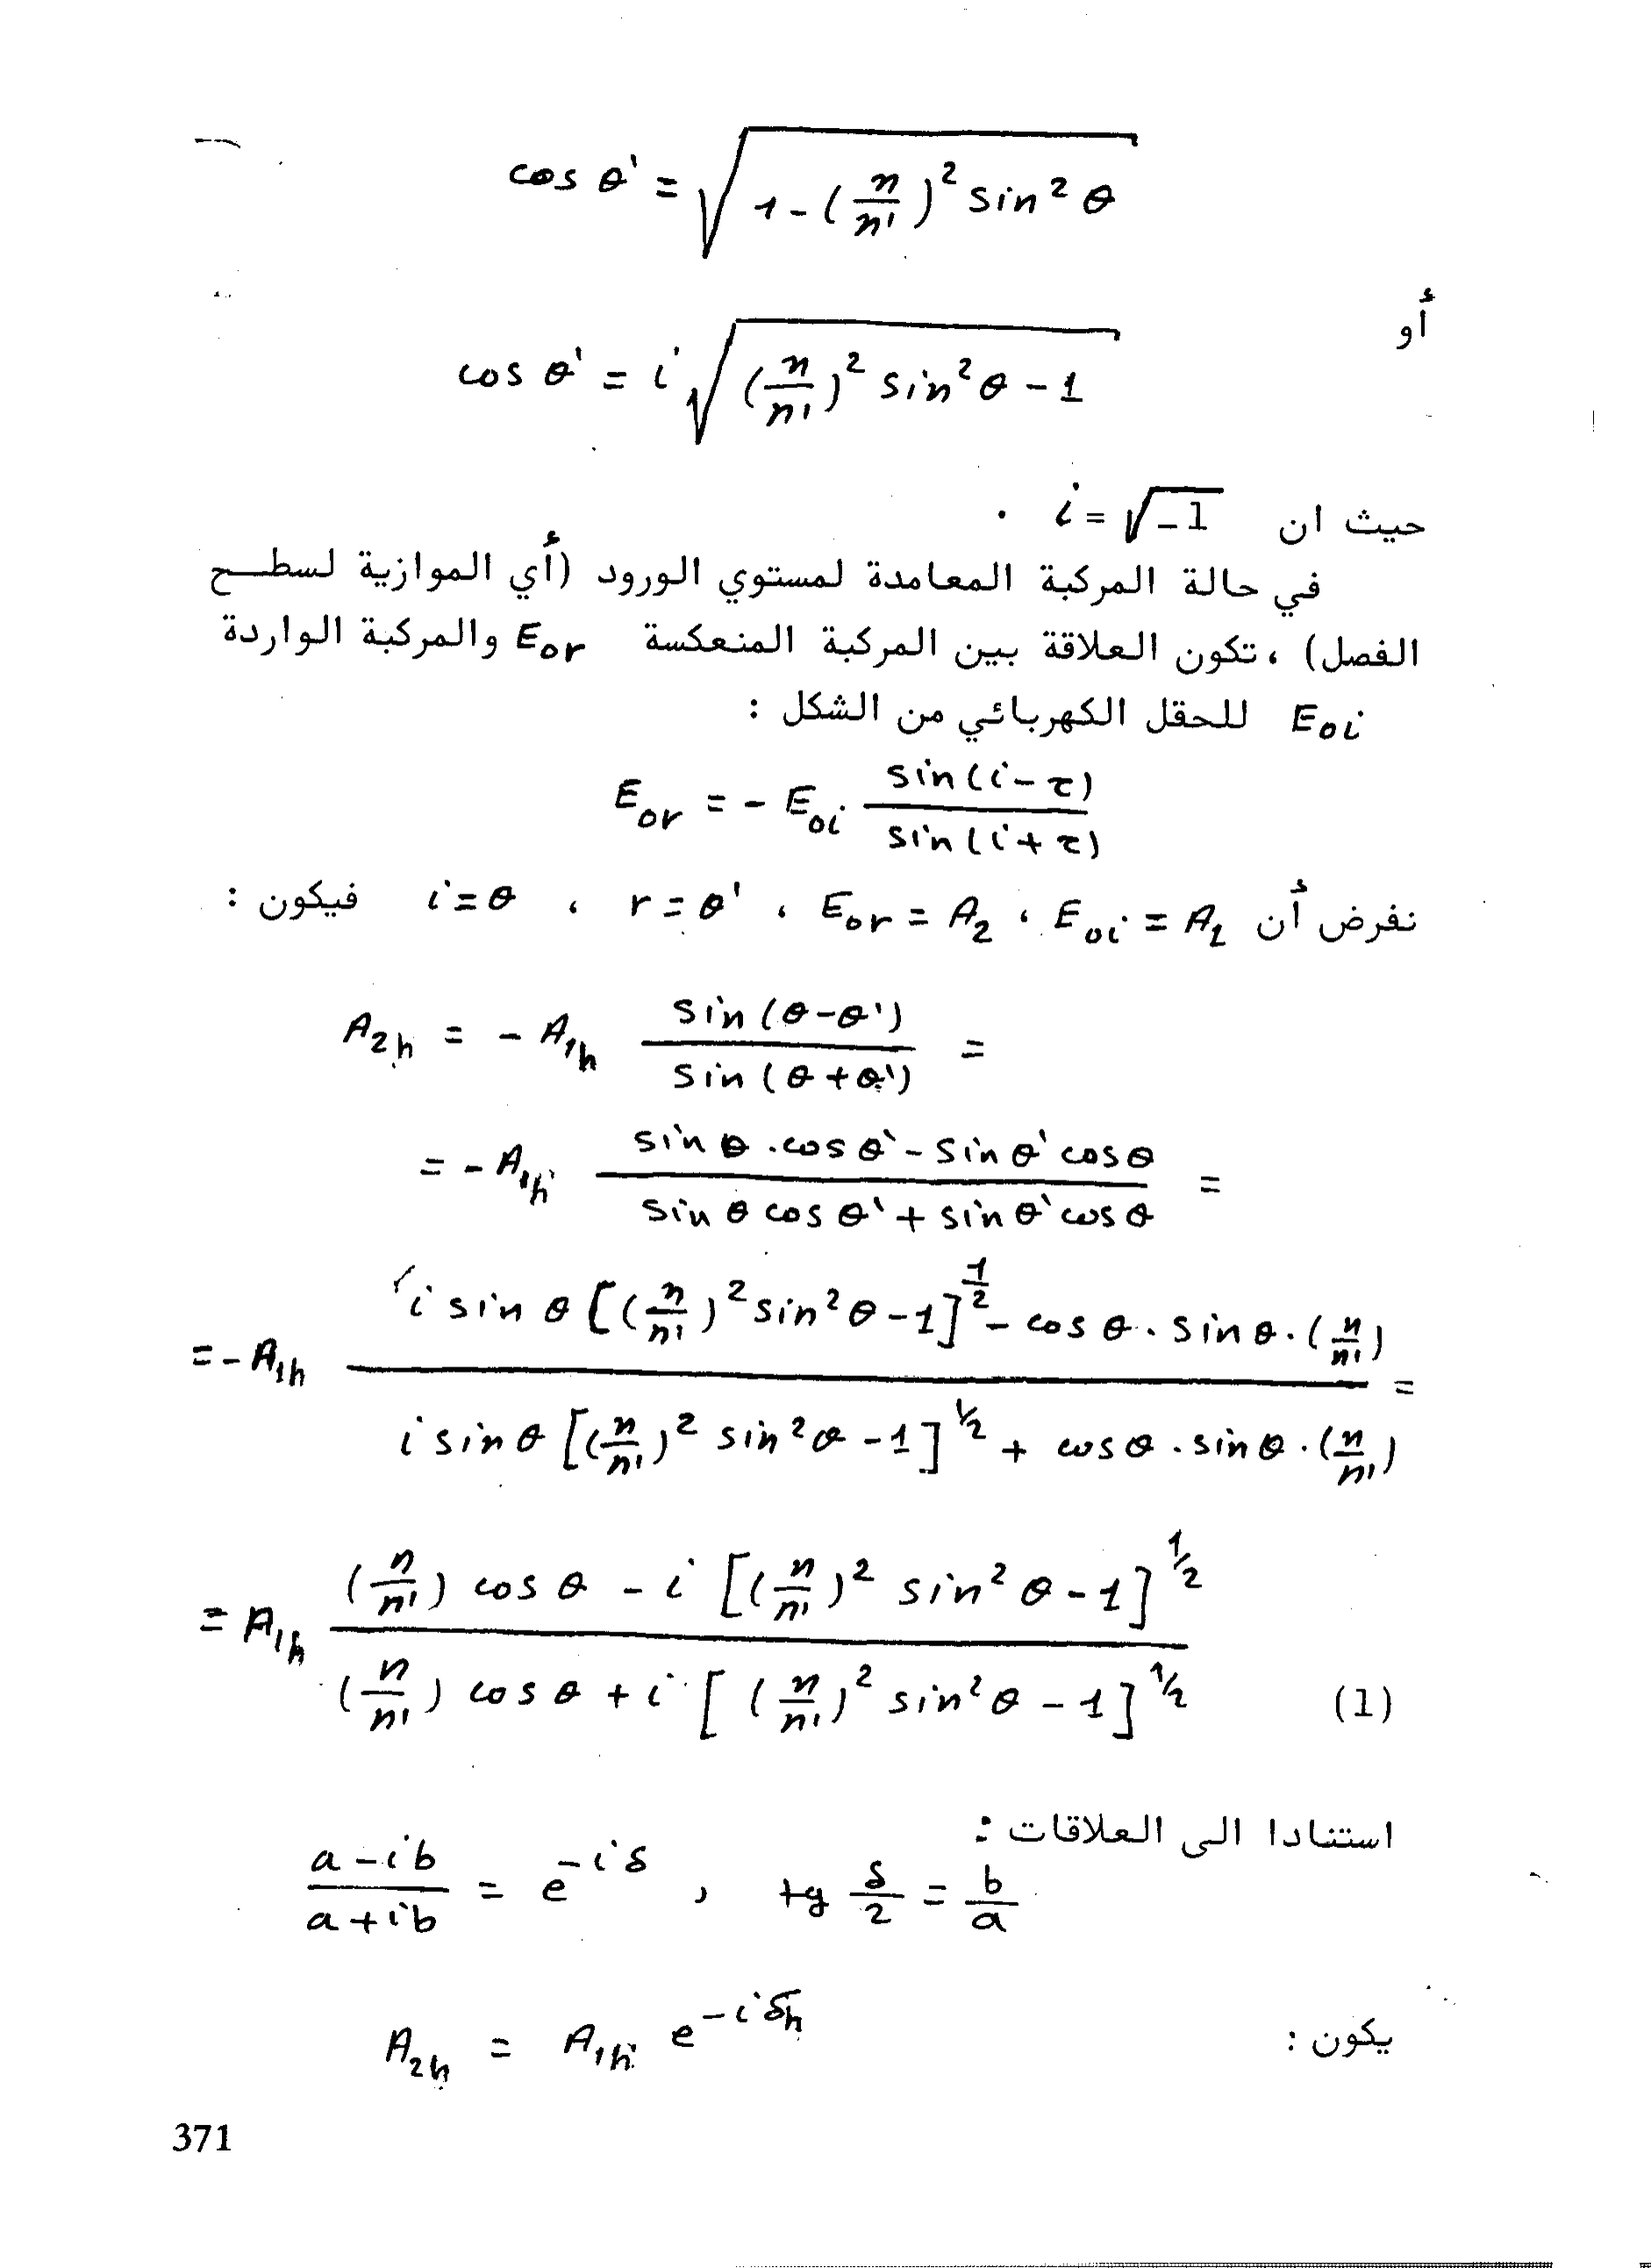 cos θ' = √(1 - (n/n')² sin² θ)
أو
cos θ' = i √((n/n')² sin² θ - 1)
حيث ان i = √-1 .
في حالة المركبة المعامدة لمستوي الورود (أي الموازية لسطـح
الفصل) ، تكون العلاقة بين المركبة المنعكسة Eor والمركبة الواردة
Eoi للحقل الكهربائي من الشكل :
Eor = - Eoi sin(i - r) / sin(i + r)
نفرض أن Eoi = A1 ، Eor = A2 ، r = θ' ، i = θ فيكون :
A2h = - A1h sin(θ - θ') / sin(θ + θ') =
= - A1h (sin θ . cos θ' - sin θ' cos θ) / (sin θ cos θ' + sin θ' cos θ) =
= - A1h (i sin θ [(n/n')² sin² θ - 1]^1/2 - cos θ . sin θ . (n/n')) / (i sin θ [(n/n')² sin² θ - 1]^1/2 + cos θ . sin θ . (n/n')) =
= A1h ((n/n') cos θ - i [(n/n')² sin² θ - 1]^1/2) / ((n/n') cos θ + i [(n/n')² sin² θ - 1]^1/2) (1)
استنادا الى العلاقات :
(a - ib) / (a + ib) = e^-iδ , tg δ/2 = b/a
يكون :
A2h = A1h e^-iδh
371